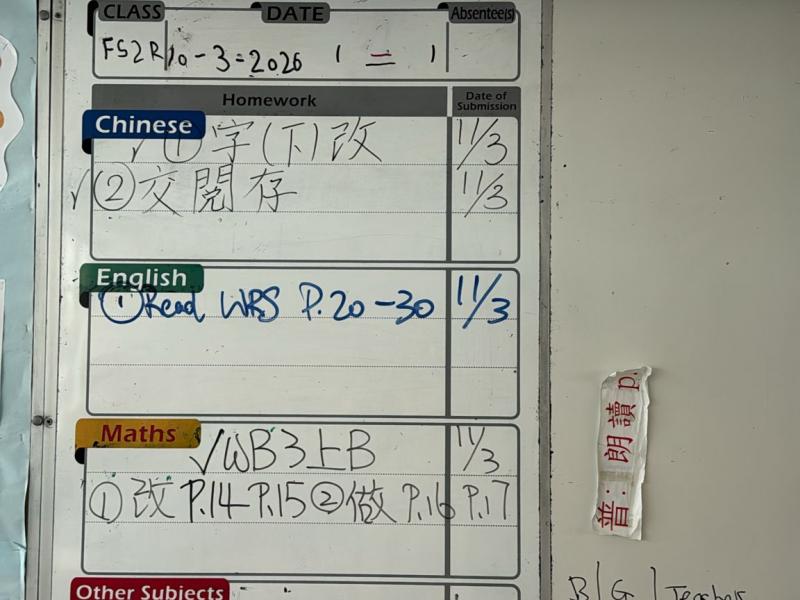 CLASS DATE Absentee(s)
FS2R 10-3-2026 1 = 1
Homework Date of Submission
Chinese
✓ ① 字(下)改 11/3
✓ ② 交閱存 11/3
English
① Read WRS P.20-30 11/3
Maths
✓ WB3上B 11/3
① 改 P.14-P.15 ② 做 P.16 P.17
Other Subjects
普: 朗讀 p.
B | G | Teachers